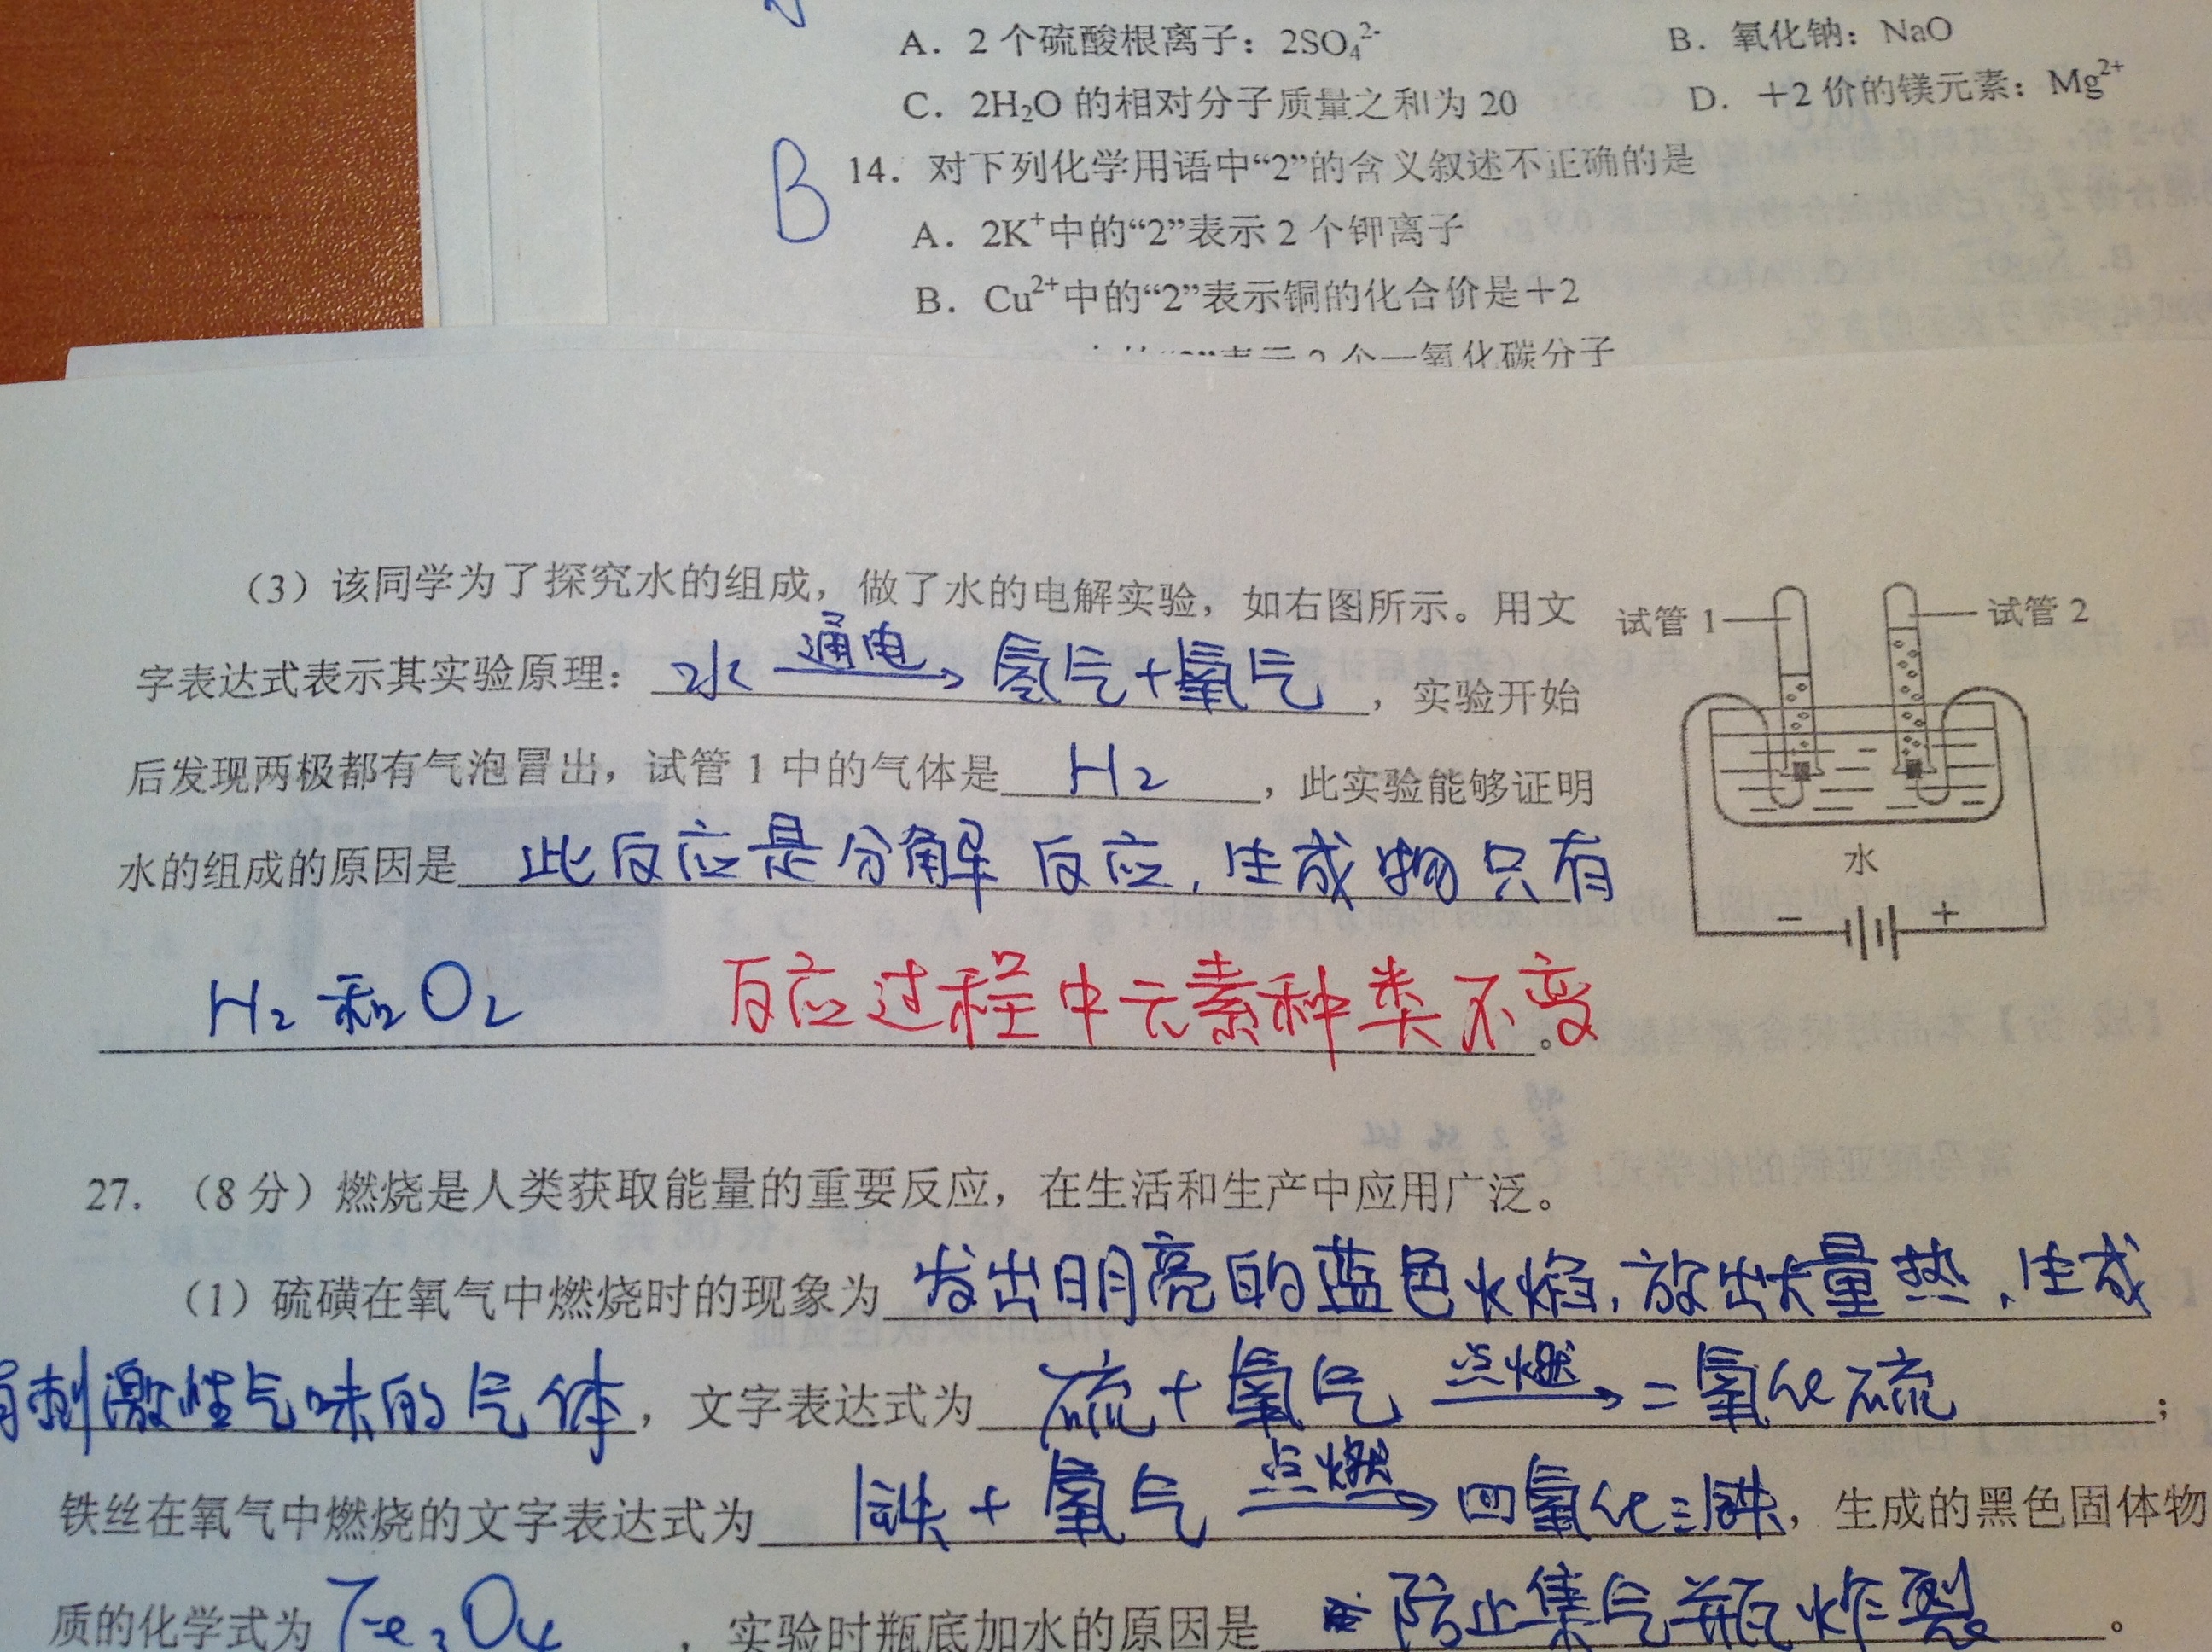 A．2 个硫酸根离子：2SO₄²⁻ B．氧化钠：NaO
C．2H₂O 的相对分子质量之和为 20 D．＋2 价的镁元素：Mg²⁺
B 14．对下列化学用语中“2”的含义叙述不正确的是
A．2K⁺中的“2”表示 2 个钾离子
B．Cu²⁺中的“2”表示铜的化合价是＋2
“2”表示 2 个一氧化碳分子
（3）该同学为了探究水的组成，做了水的电解实验，如右图所示。用文
字表达式表示其实验原理：水 通电→ 氢气+氧气，实验开始
后发现两极都有气泡冒出，试管 1 中的气体是 H₂，此实验能够证明
水的组成的原因是 此反应是分解反应，生成物只有
H₂和O₂ 反应过程中元素种类不变。
试管 1 试管 2
水
－ ＋
27．（8 分）燃烧是人类获取能量的重要反应，在生活和生产中应用广泛。
（1）硫磺在氧气中燃烧时的现象为 发出明亮的蓝色火焰，放出大量热，生成
有刺激性气味的气体，文字表达式为 硫+氧气 点燃→ 二氧化硫；
铁丝在氧气中燃烧的文字表达式为 铁+氧气 点燃→ 四氧化三铁，生成的黑色固体物
质的化学式为 Fe₃O₄，实验时瓶底加水的原因是 防止集气瓶炸裂。